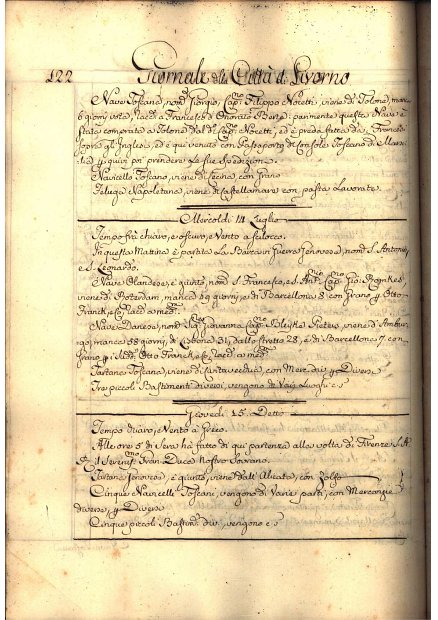 122 Giornale della Città di Livorno
Nave Toscana, nom. S. Giorgio, Cap.no Filippo Noretti, viene di Tolone, manca
6 giorni vota, racc. a Francesco d'Onorato Berte: parimente questa Nave è
stata comprata a Tolone dal d. Cap.no Noretti, ed è preda fatta da Francesi
sopra gl'Inglesi, ed è qui venuta con Passaporto del Console Toscano di Marsi-
lia p. quivi poi prendere le sue Spedizioni
Navicello Toscano, viene di Cecina, con Grano
Feluga Napoletana, viene di Castellamare con pasta Lavorata
Mercoldi 14 Luglio
Tempo frà chiaro, e oscuro, e Vento a scilocco
In questa Mattina è partita la Barca in Guerra Genovese, nom. S. Antonio,
e S. Leonardo.
Nave Olandese, è quinto, nom. S. Francesco, e S. Ant. Cap.no Gio.
viene di Roterdam, manca 59 giorni, e di Barcellona 8 con Grano p. Otto
Franck, e Co. racc. a med.
Nave Danese, nom. Giovanna, Cap.no Pieters, viene d'Ambur-
go, manca 58 giorni, di Lisbona 31, dallo stretto 28, e di Barcellona 7 con
Grano p. i Sudd. Otto Franck, e Co. racc. a med.
Tartana Toscana, viene di Civitavecchia, con Merc. div. p. Diversi
Tre piccoli Bastimenti diversi, vengono de Varj Luoghi e s
Giovedi 15 Detto
Tempo chiaro, e Vento à Greco.
Alle ore 5 di Sera ha fatto di qui partenza alla volta di Firenze S. A.
R. il Serenis.mo Gran Duca Nostro Sovrano.
Tartana Genovese, è quinto, viene dall'Alicata, con Zolfo
Cinque Navicelli Toscani, vengono da Varie parti, con Mercanzie
diverse, p. Diversi
Cinque piccoli Bastim. div. vengono e s